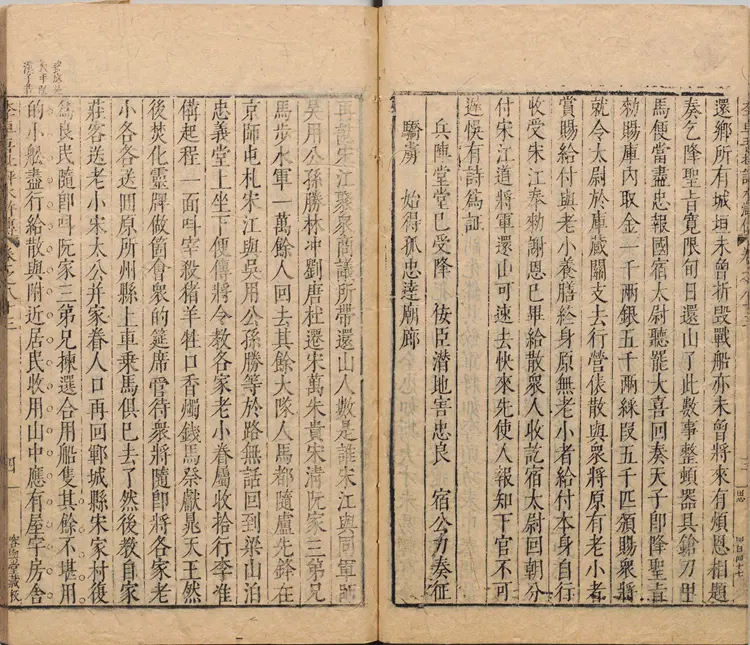 還鄉所有城垣未曾拆毀戰船亦未曾將來有煩恩相題
奏乞降聖旨寬限旬日還山了此數事整頓器具鎗刀甲
馬便當盡忠報國宿太尉聽罷大喜回奏天子即降聖旨
勑賜庫內取金一千兩銀五千兩綵叚五千匹頒賜衆將
就令太尉於庫藏關支去行營俵散與衆將原有老小者
賞賜給付與老小養贍終身原無老小者給付本身自行
收受宋江奉勑謝恩已畢給散衆人收訖宿太尉回朝分
付宋江道將軍還山可速去快來先使人報知下官不可
遲悞有詩爲証
兵陣堂堂已受降 佞臣潛地害忠良 宿公力奏征
驕虜 始得孤忠達廟廊
再說宋江聚衆商議所帶還山人數是誰宋江與同軍師
吳用公孫勝林冲劉唐杜遷宋萬朱貴宋清阮家三弟兄
馬步水軍一萬餘人回去其餘大隊人馬都隨盧先鋒在
京師屯札宋江與吳用公孫勝等於路無話回到梁山泊
忠義堂上坐下便傳將令教各家老小眷屬收拾行李准
備起程一面叫宰殺猪羊牲口香燭錢馬祭獻晁天王然
後焚化靈牌做箇會衆的筵席管待衆將隨即將各家老
小各各送回原所州縣上車乘馬俱已去了然後教自家
莊客送老小宋太公并家眷人口再回鄆城縣宋家村復
爲良民隨即叫阮家三弟兄揀選合用船隻其餘不堪用
的小船盡行給散與附近居民收用山中應有屋宇房舍
四